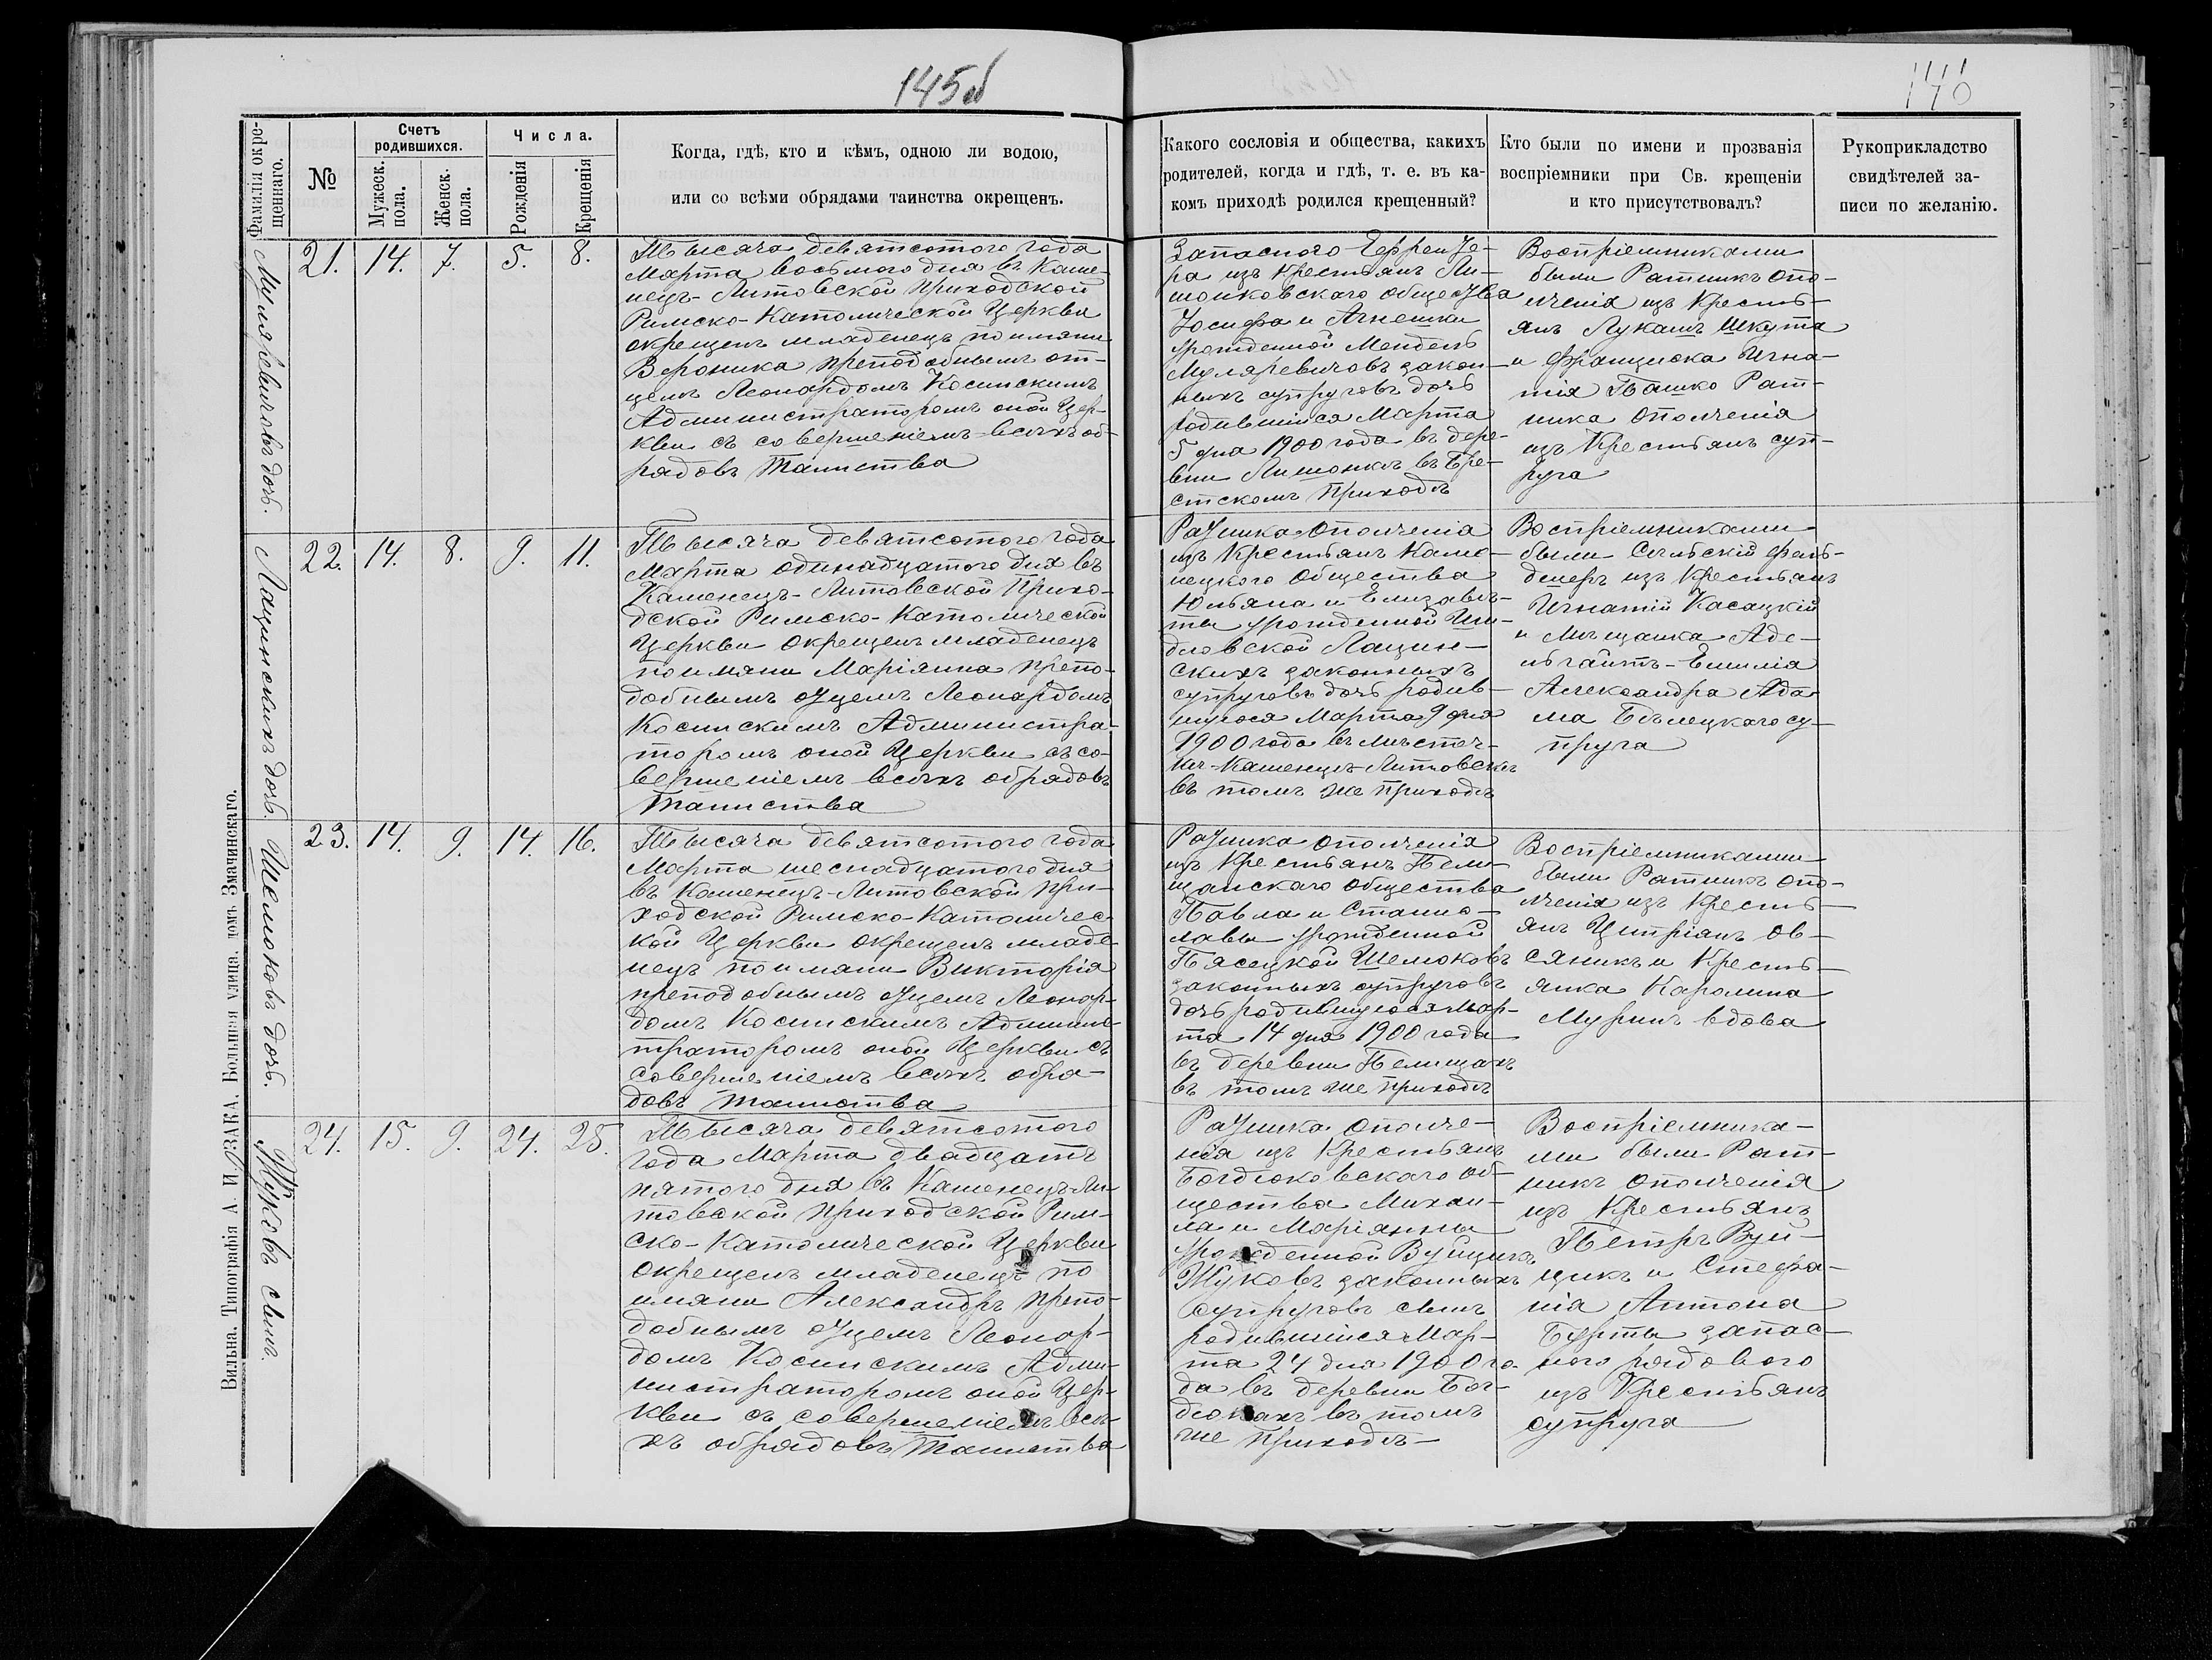 145об
Фамилія окре-
щеннаго.
№
Счетъ
родившихся.
Мужеск.
пола.
Женск.
пола.
Числа.
Рожденія
Крещенія
Когда, гдѣ, кто и кѣмъ, одною ли водою,
или со всѣми обрядами таинства окрещенъ.
Какого сословія и общества, какихъ
родителей, когда и гдѣ, т. е. въ ка-
комъ приходѣ родился крещенный?
Кто были по имени и прозванія
воспріемники при Св. крещеніи
и кто присутствовалъ?
Рукоприкладство
свидѣтелей за-
писи по желанію.
дочь.
21. 14. 7. 5. 8.
Тысяча девятсотого года
Марта восьмого дня въ Каме-
нецъ-Литовской приходской
Римско-Католической Церкви
окрещенъ младенецъ по имяни
Вероника преподобнымъ от-
цемъ Леонардомъ Косинскимъ
Администраторомъ оной Цер-
кви съ совершеніемъ всѣхъ об-
рядовъ Таинства
Запасного Ефрейто-
ра изъ крестьянъ Ли-
шонковскаго общества
Іосифа и Агнешки
урожденной Мендель
Муляревичовъ закон-
ныхъ супруговъ дочь
родившійся Марта
5 дня 1900 года въ дере-
вни Лишонкѣ въ Бре-
стскомъ приходѣ
Воспріемниками
были Ратникъ опо-
лченія изъ Кресть-
янъ Лукашъ Шкута
и Францишка Игна-
тія Пашко Рат-
ника ополченія
изъ Крестьянъ суп-
руга
Лацинскихъ дочь.
22. 14. 8. 9. 11.
Тысяча девятсотого года
Марта одинадцатого дня въ
Каменецъ-Литовской Прихо-
дской Римско-Католической
Церкви окрещенъ младенецъ
по имяни Маріянна препо-
добнымъ отцемъ Леонардомъ
Косинскимъ Администра-
торомъ оной Церкви съ со-
вершеніемъ всѣхъ обрядовъ
Таинства
Ратника ополченія
изъ Крестьянъ Каме-
нецкого Общества
Юльяна и Елизаве-
ты урожденной Ши-
дловской Лацин-
скихъ законныхъ
супруговъ дочь родив-
шуюся Марта 9 дня
1900 года въ мѣстеч-
кѣ-Каменцѣ-Литовскѣ
въ томъ же приходѣ
Воспріемниками
были Сельскій Фель-
дшеръ изъ Крестьянъ
Игнатій Касацкій
и Мѣщанка Аде-
льгаитъ-Емилія
Александра Ада-
ма Бѣлецкаго су-
пруга
Шемоковъ дочь.
23. 14. 9. 14. 16.
Тысяча девятсотого года
Марта шеснадцатого дня
въ Каменецъ-Литовской При-
ходской Римско-Католичес-
кой Церкви окрещенъ младе-
нецъ по имяни Викторія
преподобнымъ отцемъ Леонар-
домъ Косинскимъ Админис-
траторомъ оной Церкви съ
совершеніемъ всѣхъ обря-
довъ Таинства
Ратника ополченія
изъ Крестьянъ Пели-
щанскаго общества
Павла и Станис-
лавы урожденной
Пясецкой Шемоковъ
законныхъ супруговъ
дочь родившуюся Мар-
та 14 дня 1900 года
въ деревни Пелищахъ
въ томъ же приходѣ
Воспріемниками
были Ратникъ опо-
лченія изъ Кресть-
янъ Ципріанъ Ов-
сяникъ и Кресть-
янка Каролина
Муринъ вдова
Жуковъ сынъ.
24. 15. 9. 24. 25.
Тысяча девятсотого
года Марта двадцать
пятого дня въ Каменецъ-Ли-
товской приходской Рим-
ско-Католической Церкви
окрещенъ младенецъ по
имяни Александръ препо-
добнымъ отцемъ Леонар-
домъ Косинскимъ Адми-
нистраторомъ оной Цер-
кви съ совершеніемъ всѣ-
хъ обрядовъ Таинства
Ратника ополче-
нія изъ Крестьянъ
Богдюковскаго об-
щества Михаи-
ла и Маріянны
урожденной Вуйцикъ
Жуковъ законныхъ
супруговъ сынъ
родившійся Мар-
та 24 дня 1900 го-
да въ деревни Бог-
дюкахъ въ томъ
же приходѣ
Воспріемника-
ми были Рат-
никъ ополченія
изъ Крестьянъ
Петръ Вуй-
цикъ и Стефа-
нія Антона
Бурты запас-
ного рядового
изъ Крестьянъ
супруга
Вильна. Типографія А. И. ЗАКА, Большая улица, домъ Змачинскаго.